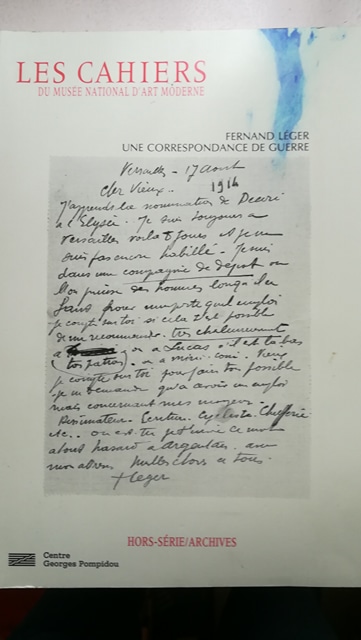 LES CAHIERS
DU MUSÉE NATIONAL D'ART MODERNE
FERNAND LÉGER
UNE CORRESPONDANCE DE GUERRE
Versailles - 17 août
1914
Cher Vieux..
J'apprends la nomination de
à l'Elysée. Je suis toujours à
Versailles voilà 8 jours et je ne
suis pas encore habillé. Je suis
dans une compagnie de dépot ou
l'on puise des hommes lorsqu'il en
faut pour n'importe quel emploi
je compte sur toi si cela t'est possible
de me recommander très chaleureusement
à ou à Lucas s'il est là bas
je compte sur toi pour faire ton possible
je ne demande qu'à avoir un emploi
mais concernant mes moyens.
Dessinateur. Secrétaire. Cycliste.
etc..
à tout hasard à Argentan. avec
mon adresse. Milles choses à tous.
F Leger
HORS-SÉRIE/ARCHIVES
Centre
Georges Pompidou